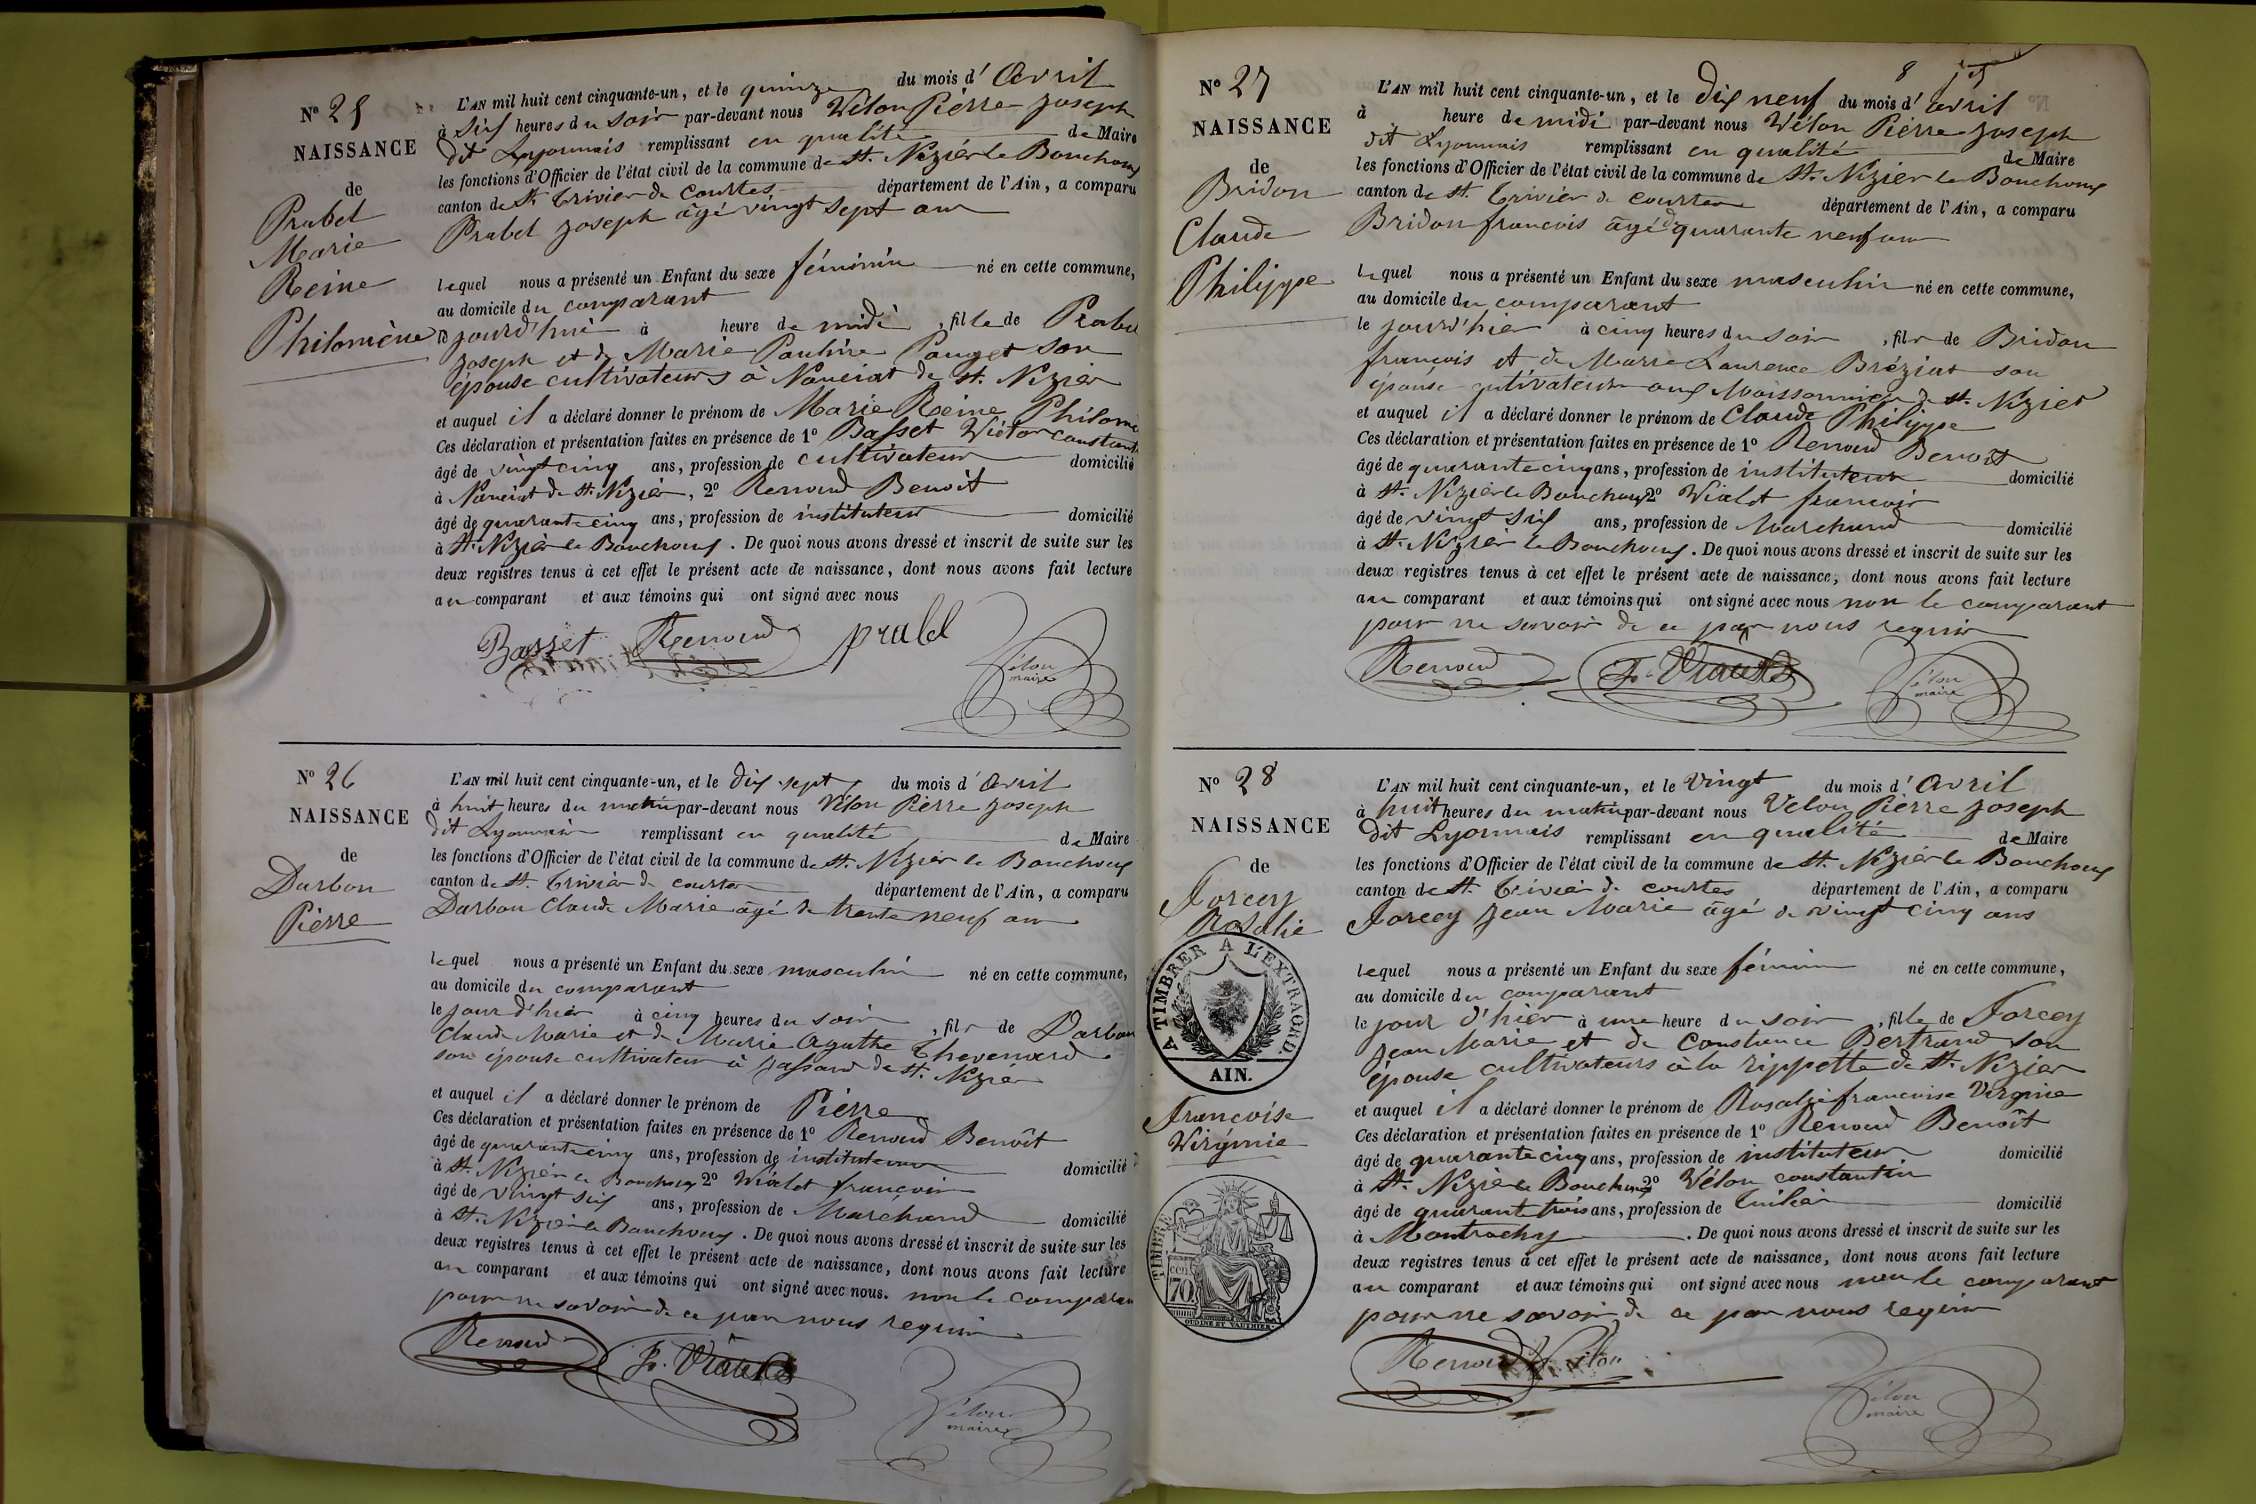 N° 25
NAISSANCE
de
Prabel
Marie
Reine
Philomène
L'AN mil huit cent cinquante-un, et le quinze du mois d'Avril
à six heures du soir par-devant nous Vélon Pierre Joseph
dit Lyonnais remplissant en qualité de Maire
les fonctions d'Officier de l'état civil de la commune de St. Nizier le Bouchoux
canton de St Trivier de Courtes département de l'Ain, a comparu
Prabel Joseph âgé vingt sept ans
lequel nous a présenté un Enfant du sexe féminin né en cette commune,
au domicile du comparant
jourd'hui à heure de midi, fille de Prabel
Joseph et de Marie Pauline Pauget son
épouse cultivateurs à Nanciat de St. Nizier
et auquel il a déclaré donner le prénom de Marie Reine Philomè
Ces déclaration et présentation faites en présence de 1° Basset Victor Constant
âgé de vingt cinq ans, profession de cultivateur domicilié
à Nanciat de St. Nizier, 2° Renoud Benoit
âgé de quarante cinq ans, profession de instituteur domicilié
à St. Nizier le Bouchoux. De quoi nous avons dressé et inscrit de suite sur les
deux registres tenus à cet effet le présent acte de naissance, dont nous avons fait lecture
au comparant et aux témoins qui ont signé avec nous
Basset Renoud prabel
Vélon
maire
N° 26
NAISSANCE
de
Darbon
Pierre
L'AN mil huit cent cinquante-un, et le dix sept du mois d'Avril
à huit heures du matin par-devant nous Vélon Pierre Joseph
dit Lyonnais remplissant en qualité de Maire
les fonctions d'Officier de l'état civil de la commune de St. Nizier le Bouchoux
canton de St. Trivier de Courtes département de l'Ain, a comparu
Darbon Claude Marie âgé de trente neuf ans
lequel nous a présenté un Enfant du sexe masculin né en cette commune,
au domicile du comparant
le jour d'hier à cinq heures du soir, fils de Darbon
Claude Marie et de Marie Agathe Thevenard
son épouse cultivateur à Passard de St. Nizier
et auquel il a déclaré donner le prénom de Pierre
Ces déclaration et présentation faites en présence de 1° Renoud Benoît
âgé de quarante cinq ans, profession de instituteur domicilié
à St. Nizier le Bouchoux 2° Vialet françois
âgé de vingt six ans, profession de Marchand domicilié
à St. Nizier le Bouchoux. De quoi nous avons dressé et inscrit de suite sur les
deux registres tenus à cet effet le présent acte de naissance, dont nous avons fait lecture
au comparant et aux témoins qui ont signé avec nous. non le comparan
pour ne savoir de ce par nous requis
Renoud F. Vialet
Vélon
maire
8
N° 27
NAISSANCE
de
Bridon
Claude
Philippe
L'AN mil huit cent cinquante-un, et le dix neuf du mois d'avril
à heure de midi par-devant nous Vélon Pierre Joseph
dit Lyonnais remplissant en qualité de Maire
les fonctions d'Officier de l'état civil de la commune de St. Nizier le Bouchoux
canton de St. Trivier de Courtes département de l'Ain, a comparu
Bridon françois âgé de quarante neuf ans
lequel nous a présenté un Enfant du sexe masculin né en cette commune,
au domicile du comparant
le jourd'hier à cinq heures du soir, fils de Bridon
françois et de Marie Laurence Bréziat son
épouse cultivateurs aux Moissonnier de St. Nizier
et auquel il a déclaré donner le prénom de Claude Philippe
Ces déclaration et présentation faites en présence de 1° Renoud Benoît
âgé de quarante cinq ans, profession de instituteur domicilié
à St. Nizier le Bouchoux 2° Vialet françois
âgé de vingt six ans, profession de Marchand domicilié
à St. Nizier le Bouchoux. De quoi nous avons dressé et inscrit de suite sur les
deux registres tenus à cet effet le présent acte de naissance, dont nous avons fait lecture
au comparant et aux témoins qui ont signé avec nous non le comparant
pour ne savoir de ce par nous requis
Renoud F. Vialet
Vélon
maire
N° 28
NAISSANCE
de
Forcey
Rosalie
A TIMBRER A L'EXTRAORD.
AIN.
Françoise
Virginie
TIMBRE
70
cen
OUDINE ET VAUTHIER
L'AN mil huit cent cinquante-un, et le vingt du mois d'Avril
à huit heures du matin par-devant nous Vélon Pierre Joseph
dit Lyonnais remplissant en qualité de Maire
les fonctions d'Officier de l'état civil de la commune de St. Nizier le Bouchoux
canton de St. Trivier de Courtes département de l'Ain, a comparu
Forcey Jean Marie âgé de vingt cinq ans
lequel nous a présenté un Enfant du sexe féminin né en cette commune,
au domicile du comparant
le jour d'hier à une heure du soir, fille de Forcey
Jean Marie et de Constance Bertrand son
épouse cultivateurs à la rippette de St. Nizier
et auquel il a déclaré donner le prénom de Rosalie françoise Virginie
Ces déclaration et présentation faites en présence de 1° Renoud Benoît
âgé de quarante cinq ans, profession de instituteur domicilié
à St. Nizier le Bouchoux 2° Vélon constantin
âgé de quarante trois ans, profession de domicilié
à Montrachy. De quoi nous avons dressé et inscrit de suite sur les
deux registres tenus à cet effet le présent acte de naissance, dont nous avons fait lecture
au comparant et aux témoins qui ont signé avec nous non le comparant
pour ne savoir de ce par nous requis
Renoud Vélon
Vélon
maire